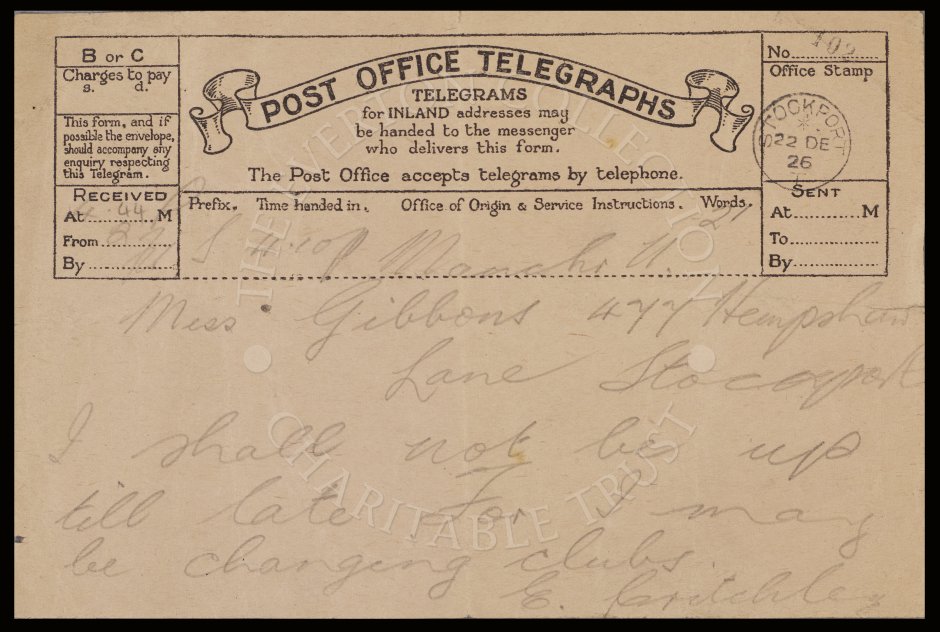 B or C
Charges to pay
s. d.
This form, and if
possible the envelope,
should accompany any
enquiry respecting
this Telegram.
RECEIVED
At 4.44 M
From
By
POST OFFICE TELEGRAPHS
TELEGRAMS
for INLAND addresses may
be handed to the messenger
who delivers this form.
The Post Office accepts telegrams by telephone.
Prefix. Time handed in. Office of Origin & Service Instructions. Words.
4.10 21
No. 102
Office Stamp
STOCKPORT
22 DE
26
SENT
At M
To
By
Miss Gibbons 477 Hempshaw
Lane Stockport
I shall not be up
till late For I may
be changing clubs.
E. Critchley
THE EVERTON COLLECTION
CHARITABLE TRUST